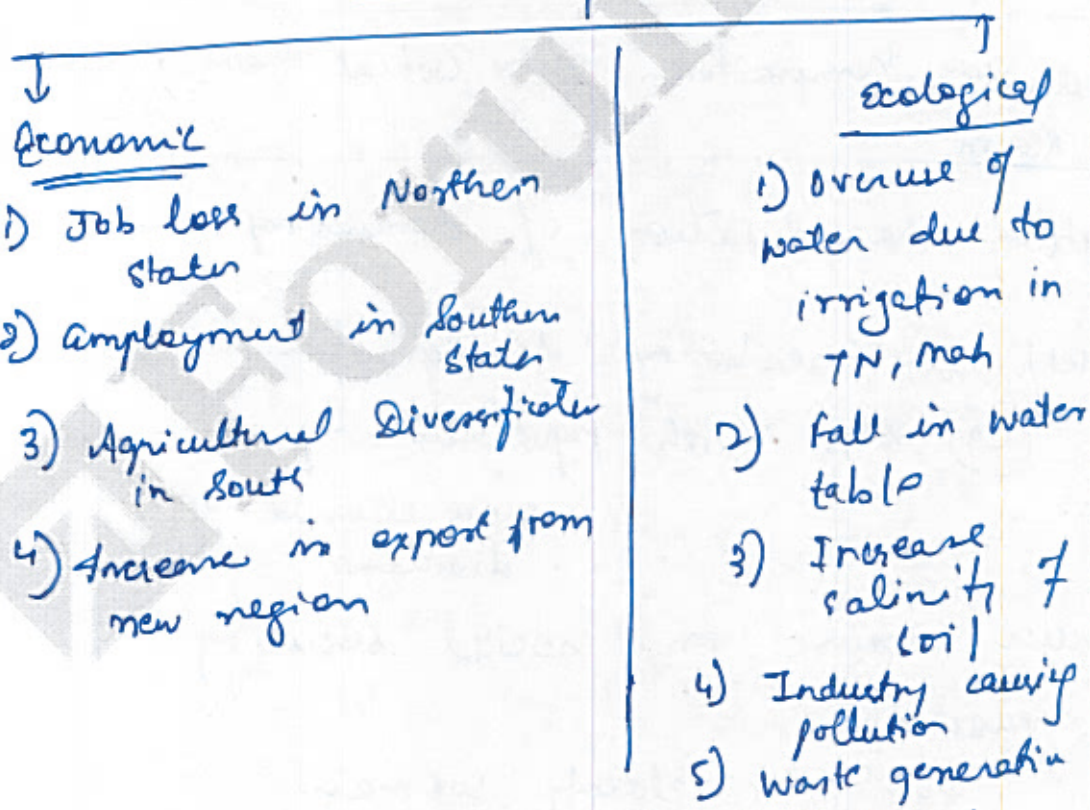 Economic
1) Job loss in Northern
states
2) Employment in Southern
States
3) Agricultural Diversification
in South
4) Increase in export from
new region
Ecological
1) Overuse of
water due to
irrigation in
TN, Mah
2) Fall in water
table
3) Increase
salinity of
soil
4) Industry causing
pollution
5) Waste generation
Forum